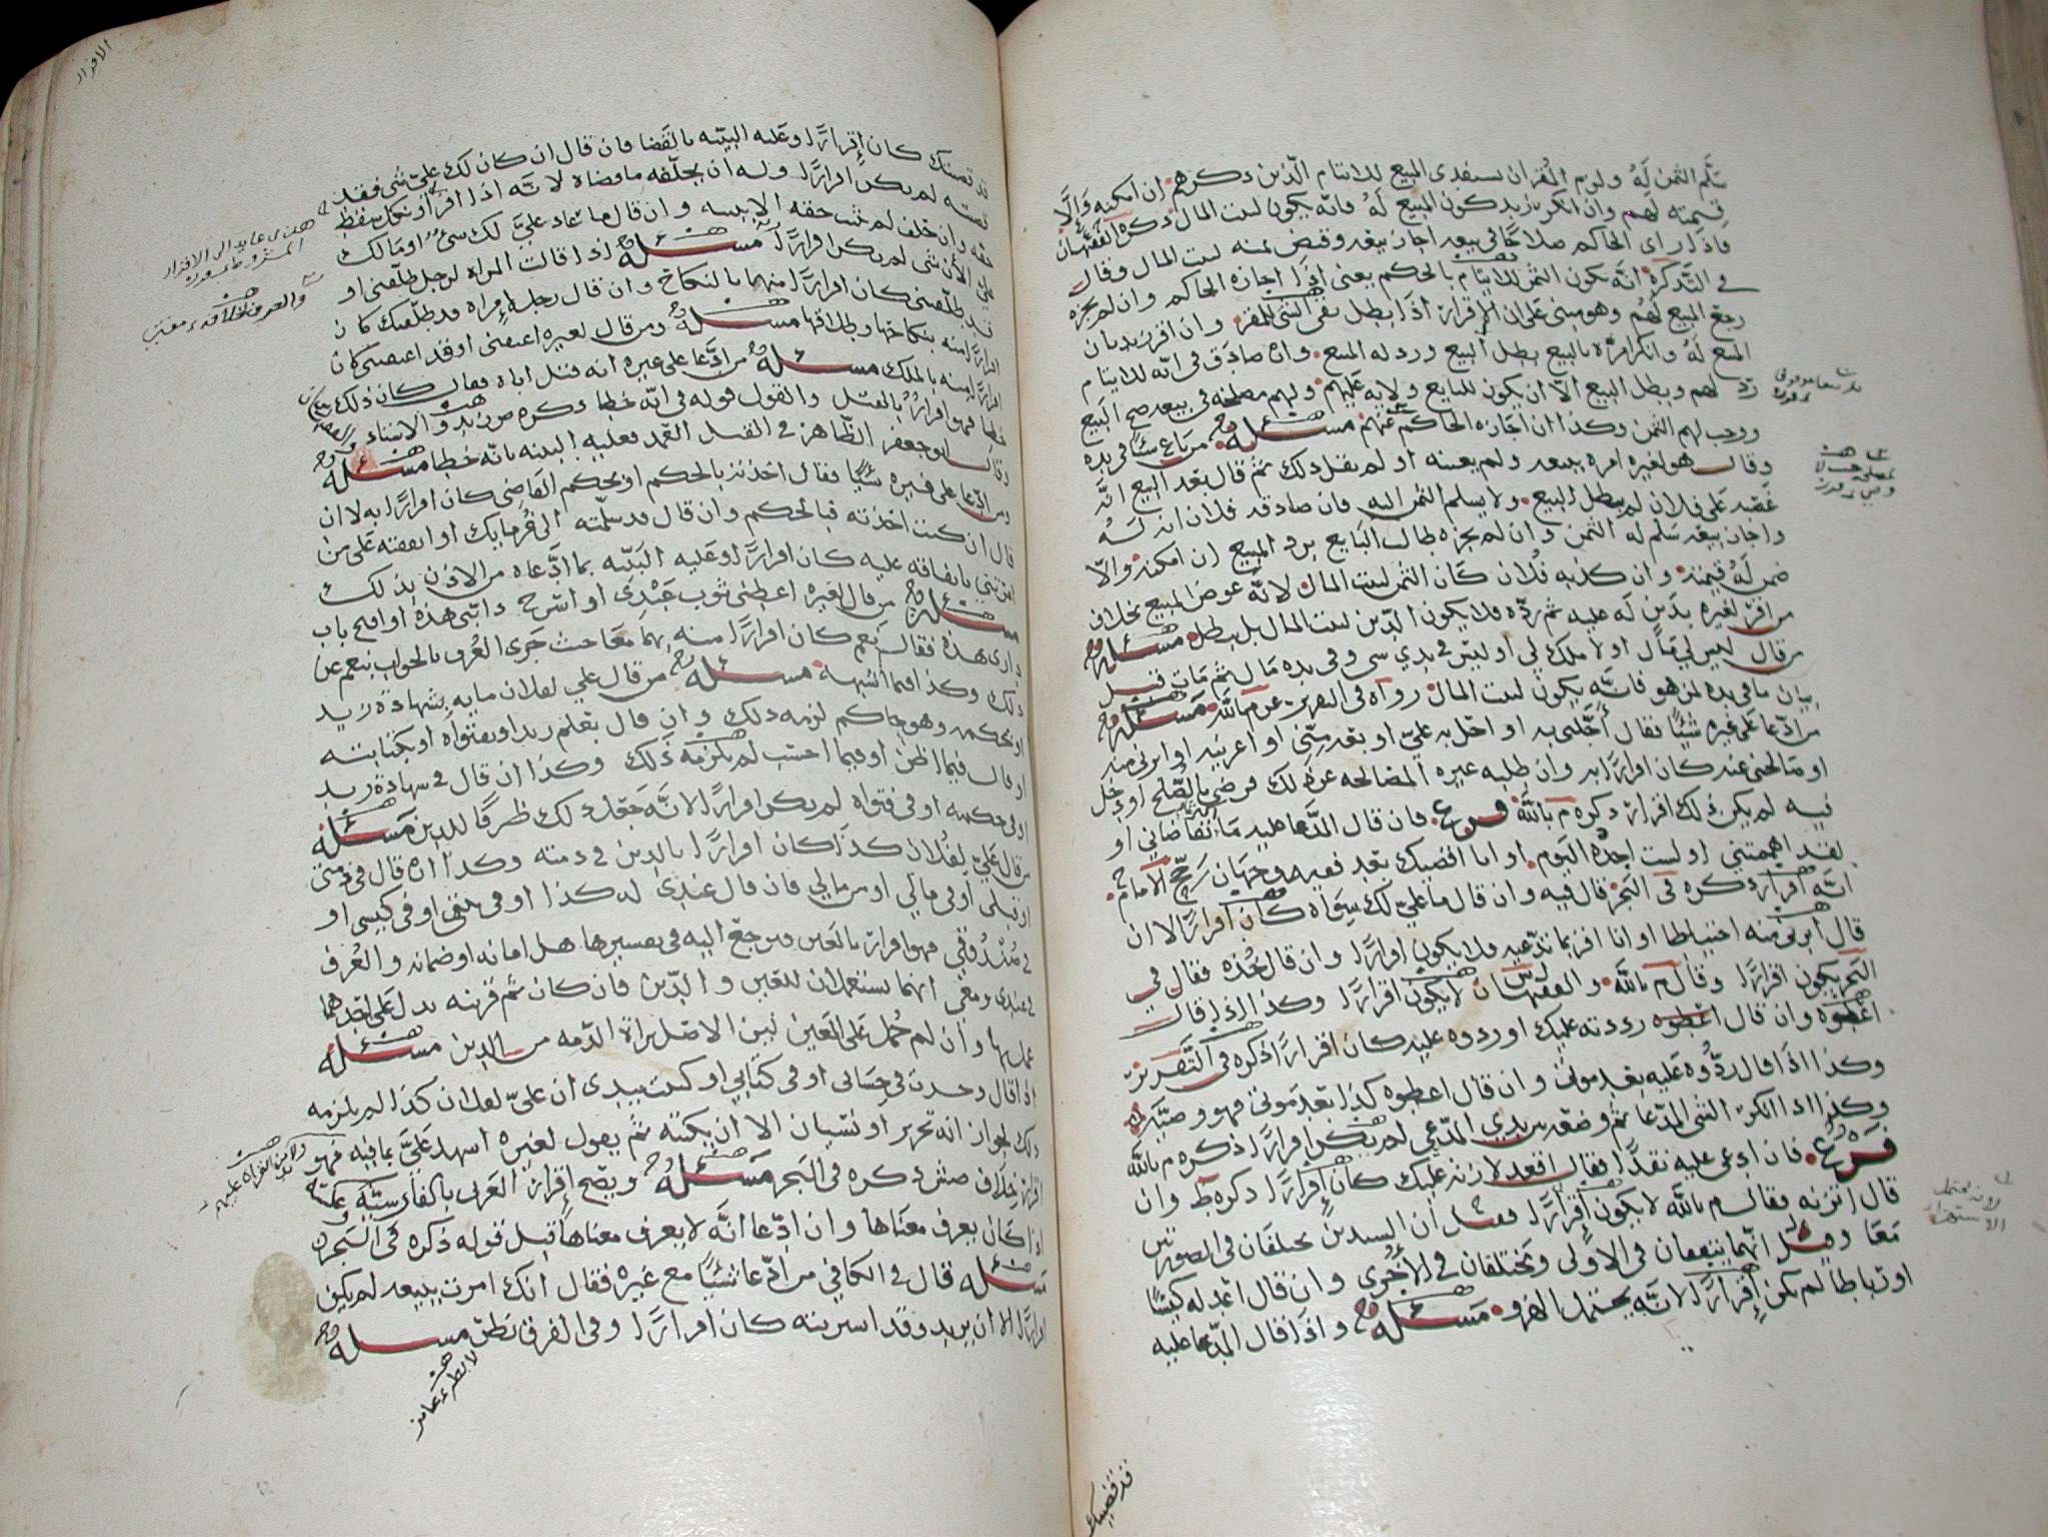 سلم الثمن له ولزم المقر ان يستفدي المبيع للايتام الذين ذكرهم ان امكنه والا
قيمته لهم وان انكر زيد كون المبيع له فانه يكون لبيت المال ذكره الفقيهان
فاذا رأى الحاكم صلاحا في بيعه اجاز بيعه وقبض ثمنه لبيت المال وقال
في التذكرة انه يكون الثمن للايتام بالحكم يعني اذا اجازه الحاكم وان لم يجزه
رجع المبيع لهم وهو مبني على ان الاقرار اذا بطل بقي الشي للمقر وان اقر زيد بان
المبيع له وانكر امره بالبيع بطل البيع ورد له المبيع وان صادق في انه للايتام
رد لهم وبطل البيع الا ان يكون للبايع ولاية عليهم ولهم مصلحة في بيعه صح البيع
ووجب لهم الثمن وكذا ان اجازه الحاكم عنهم مسئله من باع شيئا في يده
وقال هو لغيره امره ببيعه ولم يعينه او لم يقل ذلك ثم قال بعد البيع انه
غصبه على فلان لم يبطل البيع ولا يسلم الثمن اليه فان صادقه فلان انه له
واجاز بيعه سلم له الثمن وان لم يجزه طالب البايع برد المبيع ان امكنه والا
ضمن له قيمته وان كذبه فلان كان الثمن لبيت المال لانه عوض المبيع بخلاف
من اقر لغيره بدين له عليه ثم رده فلا يكون الدين لبيت المال بل يبطل مسئله
من قال ليس لي مال او لا ملك لي او ليس في يدي شي وفي يده مال ثم مات قبل
بيان ما في يده لمن هو فانه يكون لبيت المال رواه في عن م بالله مسئله
من ادعا على غيره شيئا فقال اجلني به او احل به علي او بعه مني او اعرنيه او ابرني منه
او صالحني عنه كان اقرارا به وان طلبه غيره المصالحه عن ذلك فرضي بالصلح او دخل
فيه لم يكن ذلك اقرار ذكره م بالله فرع فان قال المدعا عليه ما اتقاضاني او
لقد اهممتني او لست اجده اليوم او انا اقضيك بعد ففيه وجهان رجح الامام ح
انه اقرار ذكره في البحر قال فيه وان قال ما علي لك سواه كان اقرارا لا ان
قال ابرني منه احتياطا او انا اقر بما تدعيه فلا يكون اقرارا وان قال خذه فقال في
البحر يكون اقرارا وقال م بالله والفقيهان لا يكون اقرارا وكذا اذا قال
اعطوه وان قال اعطوه رددته عليك او ردوه عليه كان اقرارا ذكره في التقرير
وكذا اذا قال ردوه عليه بعد موتي وان قال اعطوه كذا بعد موتي فهو وصية
وكذا اذا انكر الشي المدعا ثم وضعه بين يدي المدعي لم يكن اقرارا ذكره م بالله
فرع فان ادعى عليه نقدا فقال اقعد لازنه عليك كان اقرارا ذكره ط وان
قال اتزنه فقال م بالله لا يكون اقرارا فقيل ان السيدين يختلفان في الصورتين
معا وقيل انهما يتفقان في الاولى ويختلفان في الأخرى وان قال اعد له كيسا
او رباطا لم يكن اقرارا لانه يحتمل الهزو مسئله واذا قال المدعا عليه
قد قضيتك
الاقرار
قد قضيتك كان اقرارا وعليه البينه بالقضا فان قال ان كان لك علي شي فقد
قضيته لم يكن اقرارا وله ان يحلفه ما قضاه لانه اذا اقر او نكل سقط
حقه وان حلف لم يثبت حقه الا ببينه وان قال ما عاد علي لك شي او مالك
علي الآن شي لم يكن اقرارا مسئله اذا قالت المراه لرجل طلقني او
قد طلقتني كان اقرارا منها بالنكاح وان قال رجل لامراه قد طلقتك كان
اقرارا منه بنكاحها وطلاقها مسئله ومن قال لغيره اعتقني او قد اعتقتني كان
اقرارا منه بالملك مسئله من ادعا على غيره انه قتل اباه فقال كان ذلك
خطا فهو اقرار بالقتل والقول قوله في انه خطا ذكره ص زيد والاستاذ
وقال ابو جعفر الظاهر في القتل العمد فعليه البينه بانه خطا مسئله
ومن ادعا على غيره شيئا فقال اخذته بالحكم او بحكم القاضي كان اقرارا به لا ان
قال ان كنت اخذته فبالحكم وان قال قد سلمته الى غرمايك او انفقته على من
امرتني بانفاقه عليه كان اقرارا وعليه البينه بما ادعاه من الاذن بذلك
مسئله من قال لغيره اعطني ثوب عبدي او اسرج دابتي هذه او افتح باب
داري هذه فقال نعم كان اقرارا منه بهما معا حيث جرى العرف بالجواب بنعم عن
ذلك وكذا فيما اشبهه مسئله من قال علي لفلان مايه بشهادة زيد
او بحكمه وهو حاكم لزمه ذلك وان قال بعلم زيد او بفتواه او بكتابته
او قال فيما اظن او فيما احسب لم يلزمه ذلك وكذا ان قال في شهادة زيد
او في حكمه او في فتواه لم يكن اقرارا لانه جعل ذلك ظرفا للدين مسئله
من قال علي لفلان كذا كان اقرارا بالدين في ذمته وكذا ان قال في ذمتي
او قبلي او في مالي او من مالي فان قال عندي له كذا او في او في كيسي او
في صندوقي فهو اقرار بالعين ويرجع اليه في تفسيرها هل امانه او ضمانه والعرف
في عندي ومعي انهما يستعملان للعين والدين فان كان ثم قرينه تدل على احدهما
عمل بها وان لم حمل على العين لان الاصل براة الذمه من الدين مسئله
اذا قال وجدت في حسابي او في كتابي او كتبت بيدي ان علي لفلان كذا لم يلزمه
ذلك لجواز انه تحرير او نسيان الا ان يكتبه ثم يقول لغيره اشهد علي بما فيه فهو
اقرار خلاف ش ذكره في البحر مسئله ويصح اقرار العربي بالفارسية وعكسه
اذا كان يعرف معناها وان ادعا انه لا يعرف معناها قبل قوله ذكره في البحر
مسئله قال في الكافي من ادعا شيئا مع غيره فقال انك امرت ببيعه لم يكن
اقرارا الا ان يريد وقد اشريته كان اقرارا وفي الفرق نظر مسئله